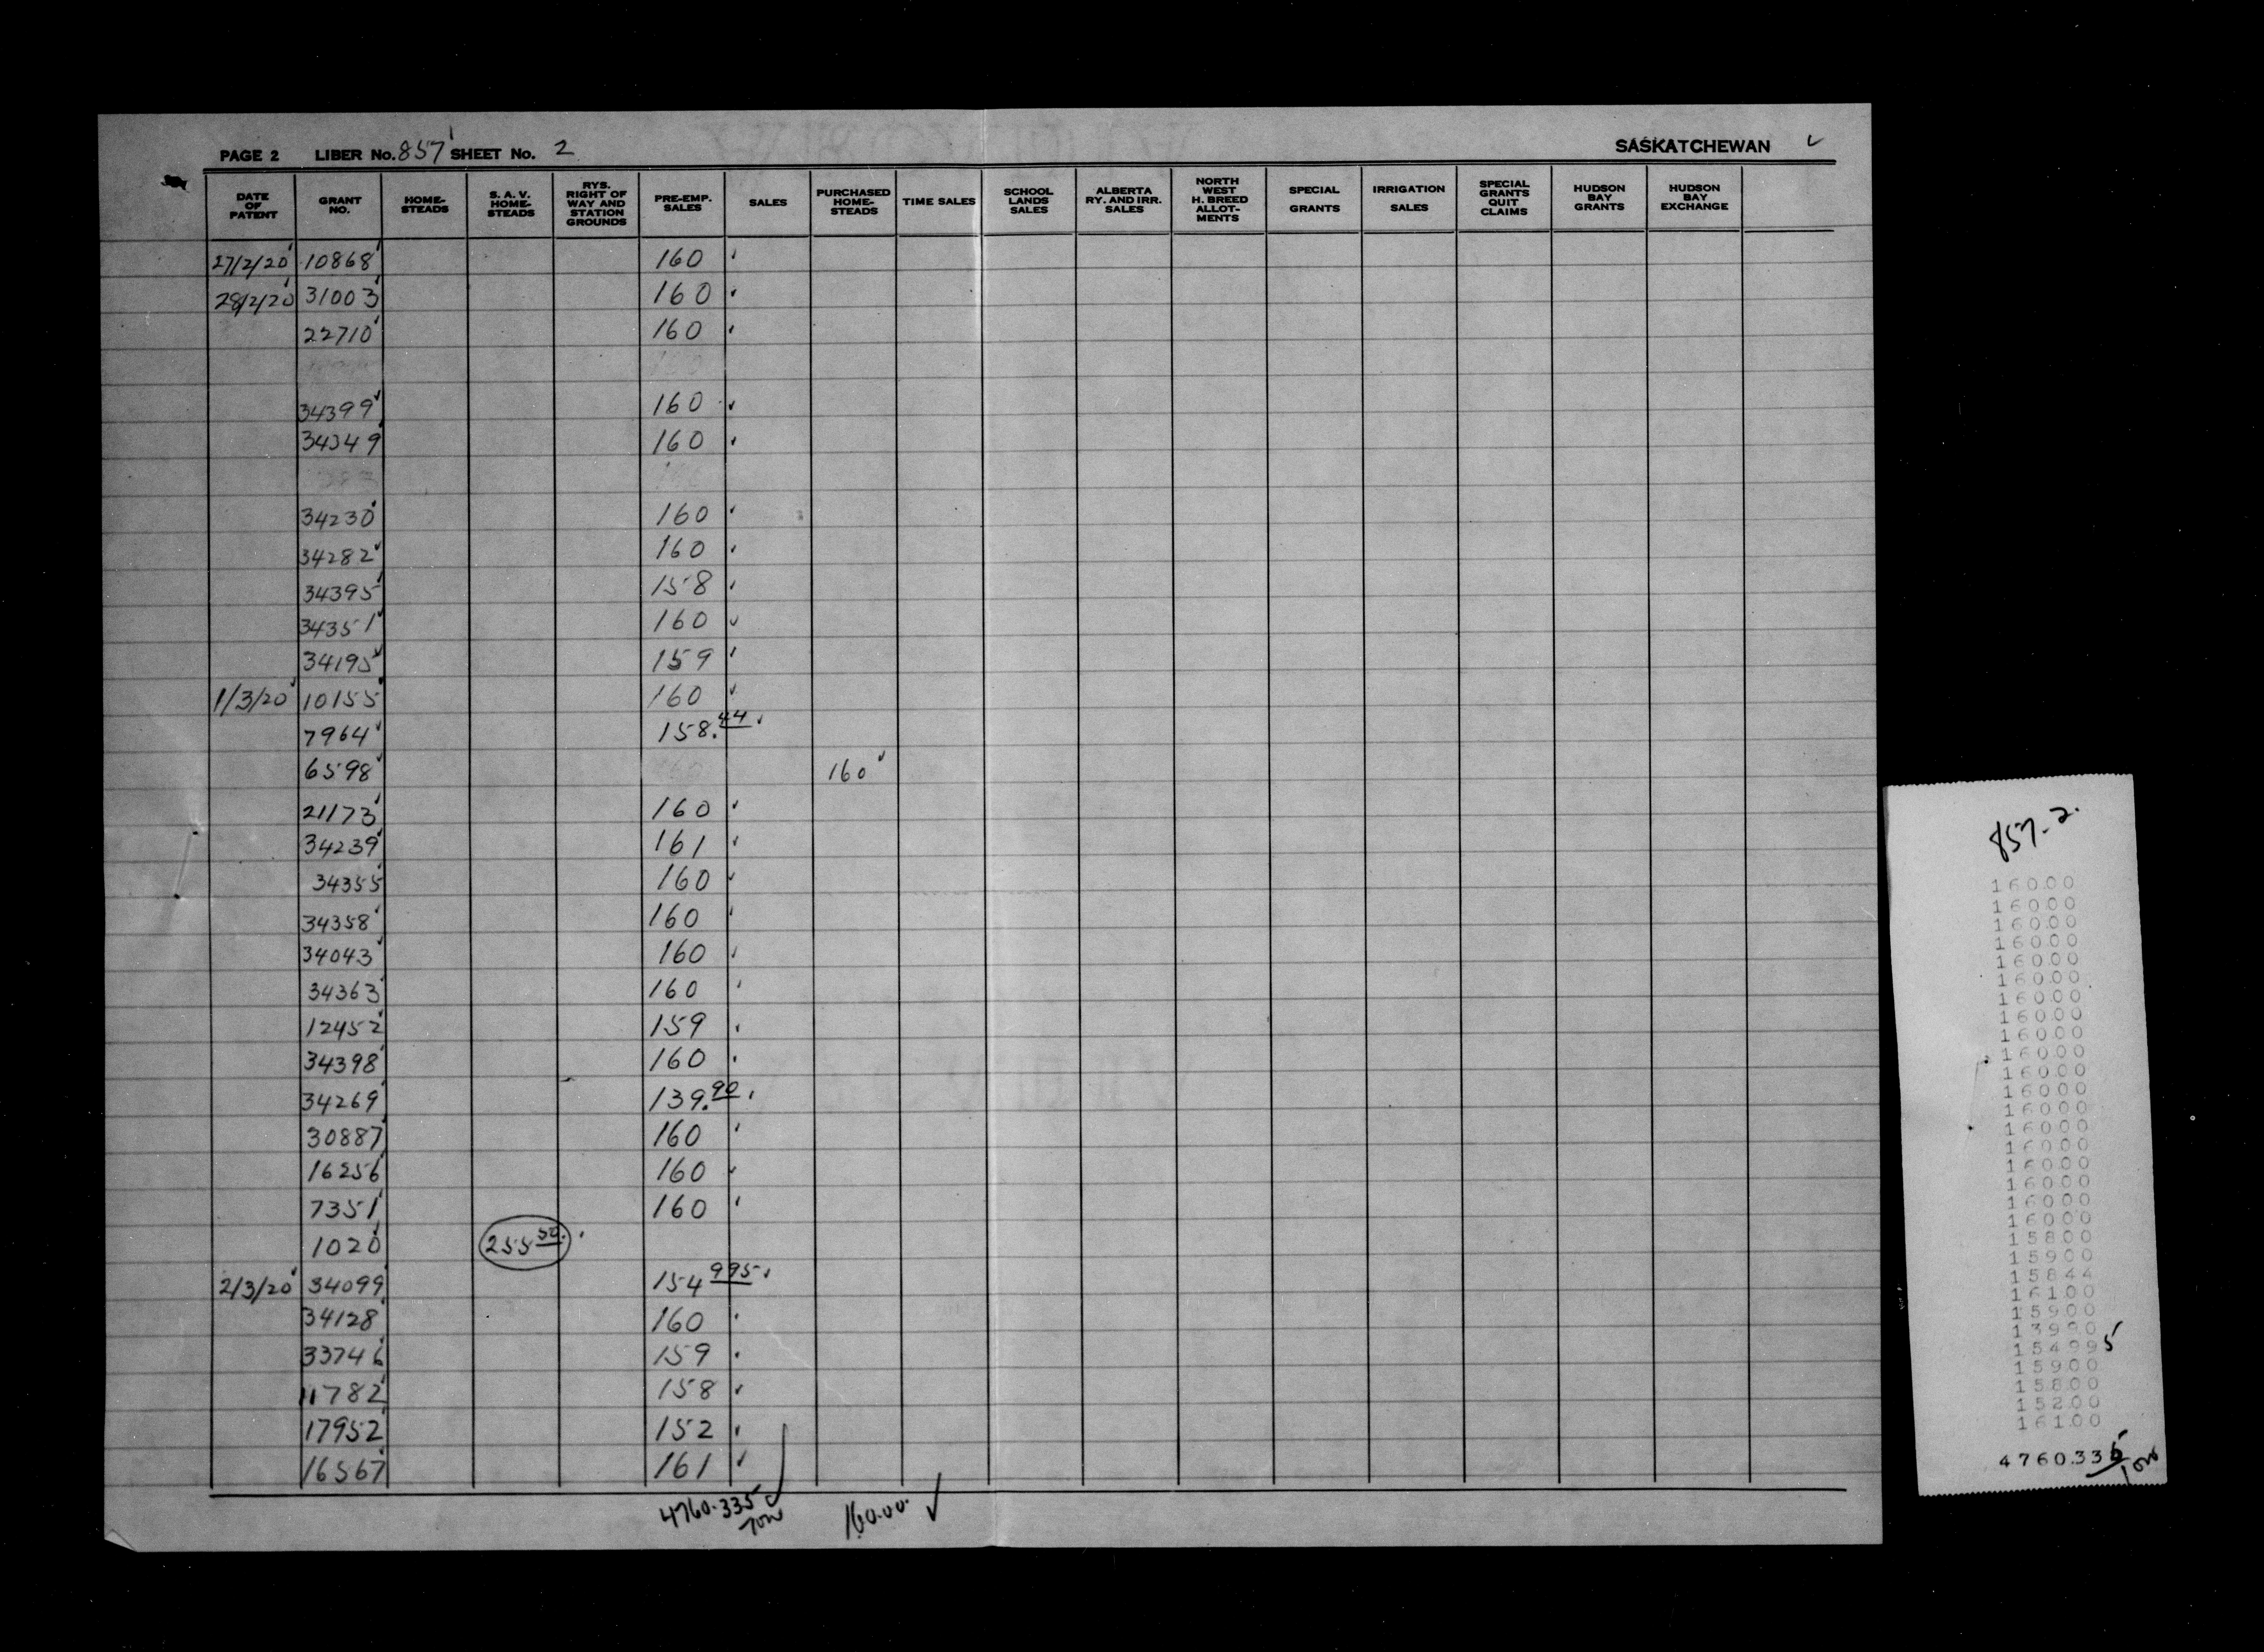 PAGE 2 LIBER No. 857 SHEET No. 2 SASKATCHEWAN
DATE OF PATENT GRANT NO. HOME-STEADS S. A. V. HOME-STEADS RYS. RIGHT OF WAY AND STATION GROUNDS PRE-EMP. SALES SALES PURCHASED HOME-STEADS TIME SALES SCHOOL LANDS SALES ALBERTA RY. AND IRR. SALES NORTH WEST H. BREED ALLOT-MENTS SPECIAL GRANTS IRRIGATION SALES SPECIAL GRANTS QUIT CLAIMS HUDSON BAY GRANTS HUDSON BAY EXCHANGE
27/2/20 10868 160
28/2/20 31003 160
22710 160
34399 160
34349 160
34230 160
34282 160
34395 158
34351 160
34195 159
1/3/20 10155 160
7964 158.44
6598 160
21173 160
34239 161
34355 160
34358 160
34043 160
34363 160
12452 159
34398 160
34269 139.90
30887 160
16256 160
7351 160
1020 255 50
2/3/20 34099 154 995
34128 160
33746 159
11782 158
17952 152
16567 161
4760.335 160.00
857-2.
160.00
160.00
160.00
160.00
160.00
160.00
160.00
160.00
160.00
160.00
160.00
160.00
160.00
160.00
160.00
160.00
160.00
160.00
160.00
158.00
159.00
158.44
161.00
159.00
139.90
154.995
159.00
158.00
152.00
161.00
4760.335